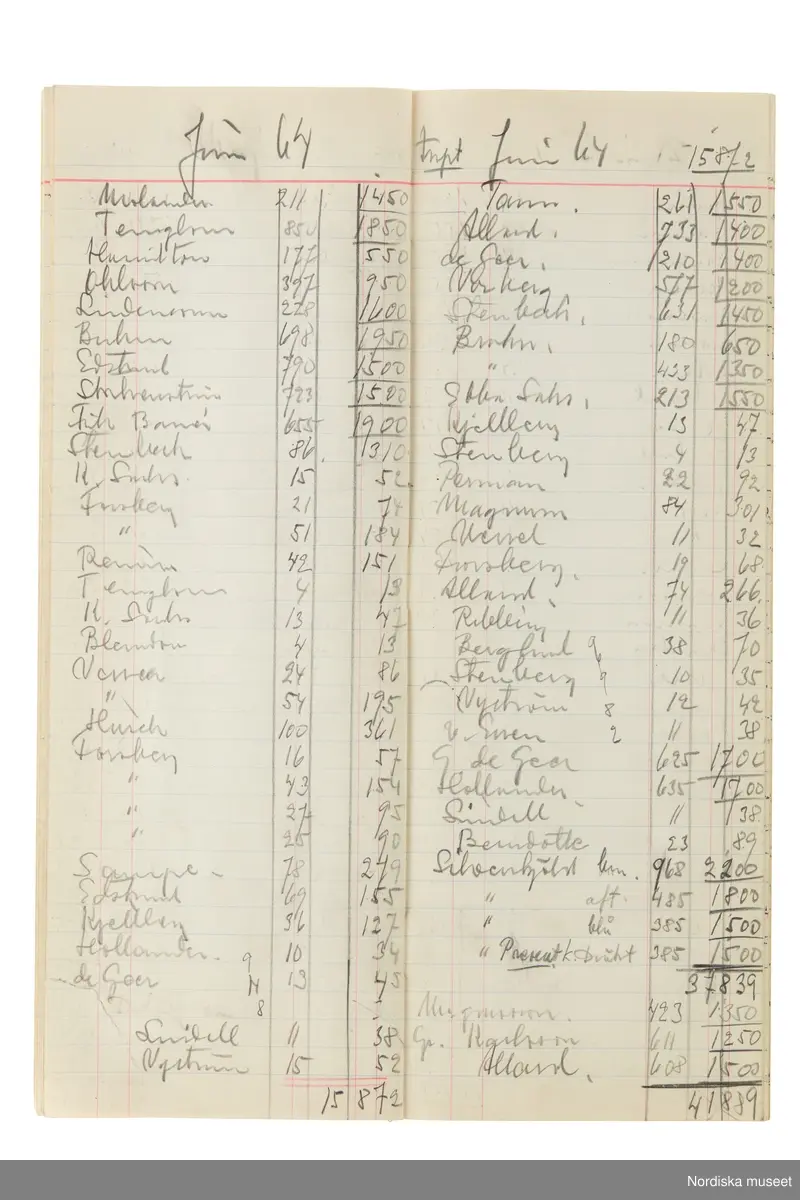 Juni 64
Molander 211 1450
Tengbom 850 1850
Hamilton 177 550
Ohlson 397 950
278 1600
Buhre 698 1950
Edstrand 790 1500
723 1500
Filh Banér 655 1900
Stenbeck 86 1310
K. Sachs 15 52
Forsberg 21 74
" 51 184
42 151
Tengbom 4 13
K. Sachs 13 47
Blendon 4 13
24 86
" 54 195
Hirsch 100 361
Forsberg 16 57
" 43 154
" 27 95
" 25 90
78 279
Edstrand 69 155
Kjellberg 36 127
Hollander 10 34
de Geer 13 45
9
N
8
Lindell 11 38
Nyström 15 52
15 872
Trspt Juni 64 15872
Tamm 261 1550
Allard 733 1400
de Geer 210 1400
Verberg 577 1200
Stenbeck 631 1450
Brohn 180 650
" 433 1350
Ebba Sachs 213 1550
Kjellberg 13 47
Stenberg 4 13
Perman 22 92
Magnum 84 301
Wessel 11 32
Forsberg 19 68
Allard 74 266
Ribbing 11 36
Berglund 9 38 70
Stenberg 9 10 35
Nyström 8 12 42
v. Essen 2 11 38
G de Geer 625 1700
Hollander 635 1700
Lindell 11 38
Bernadotte 23 89
Silverskjöld brn. 968 2200
" aft. 485 1800
" blå 385 1500
" Present 385 1500
37839
Magnusson 423 1350
Gr. Karlsson 611 1250
Allard 608 1500
41889
Nordiska museet